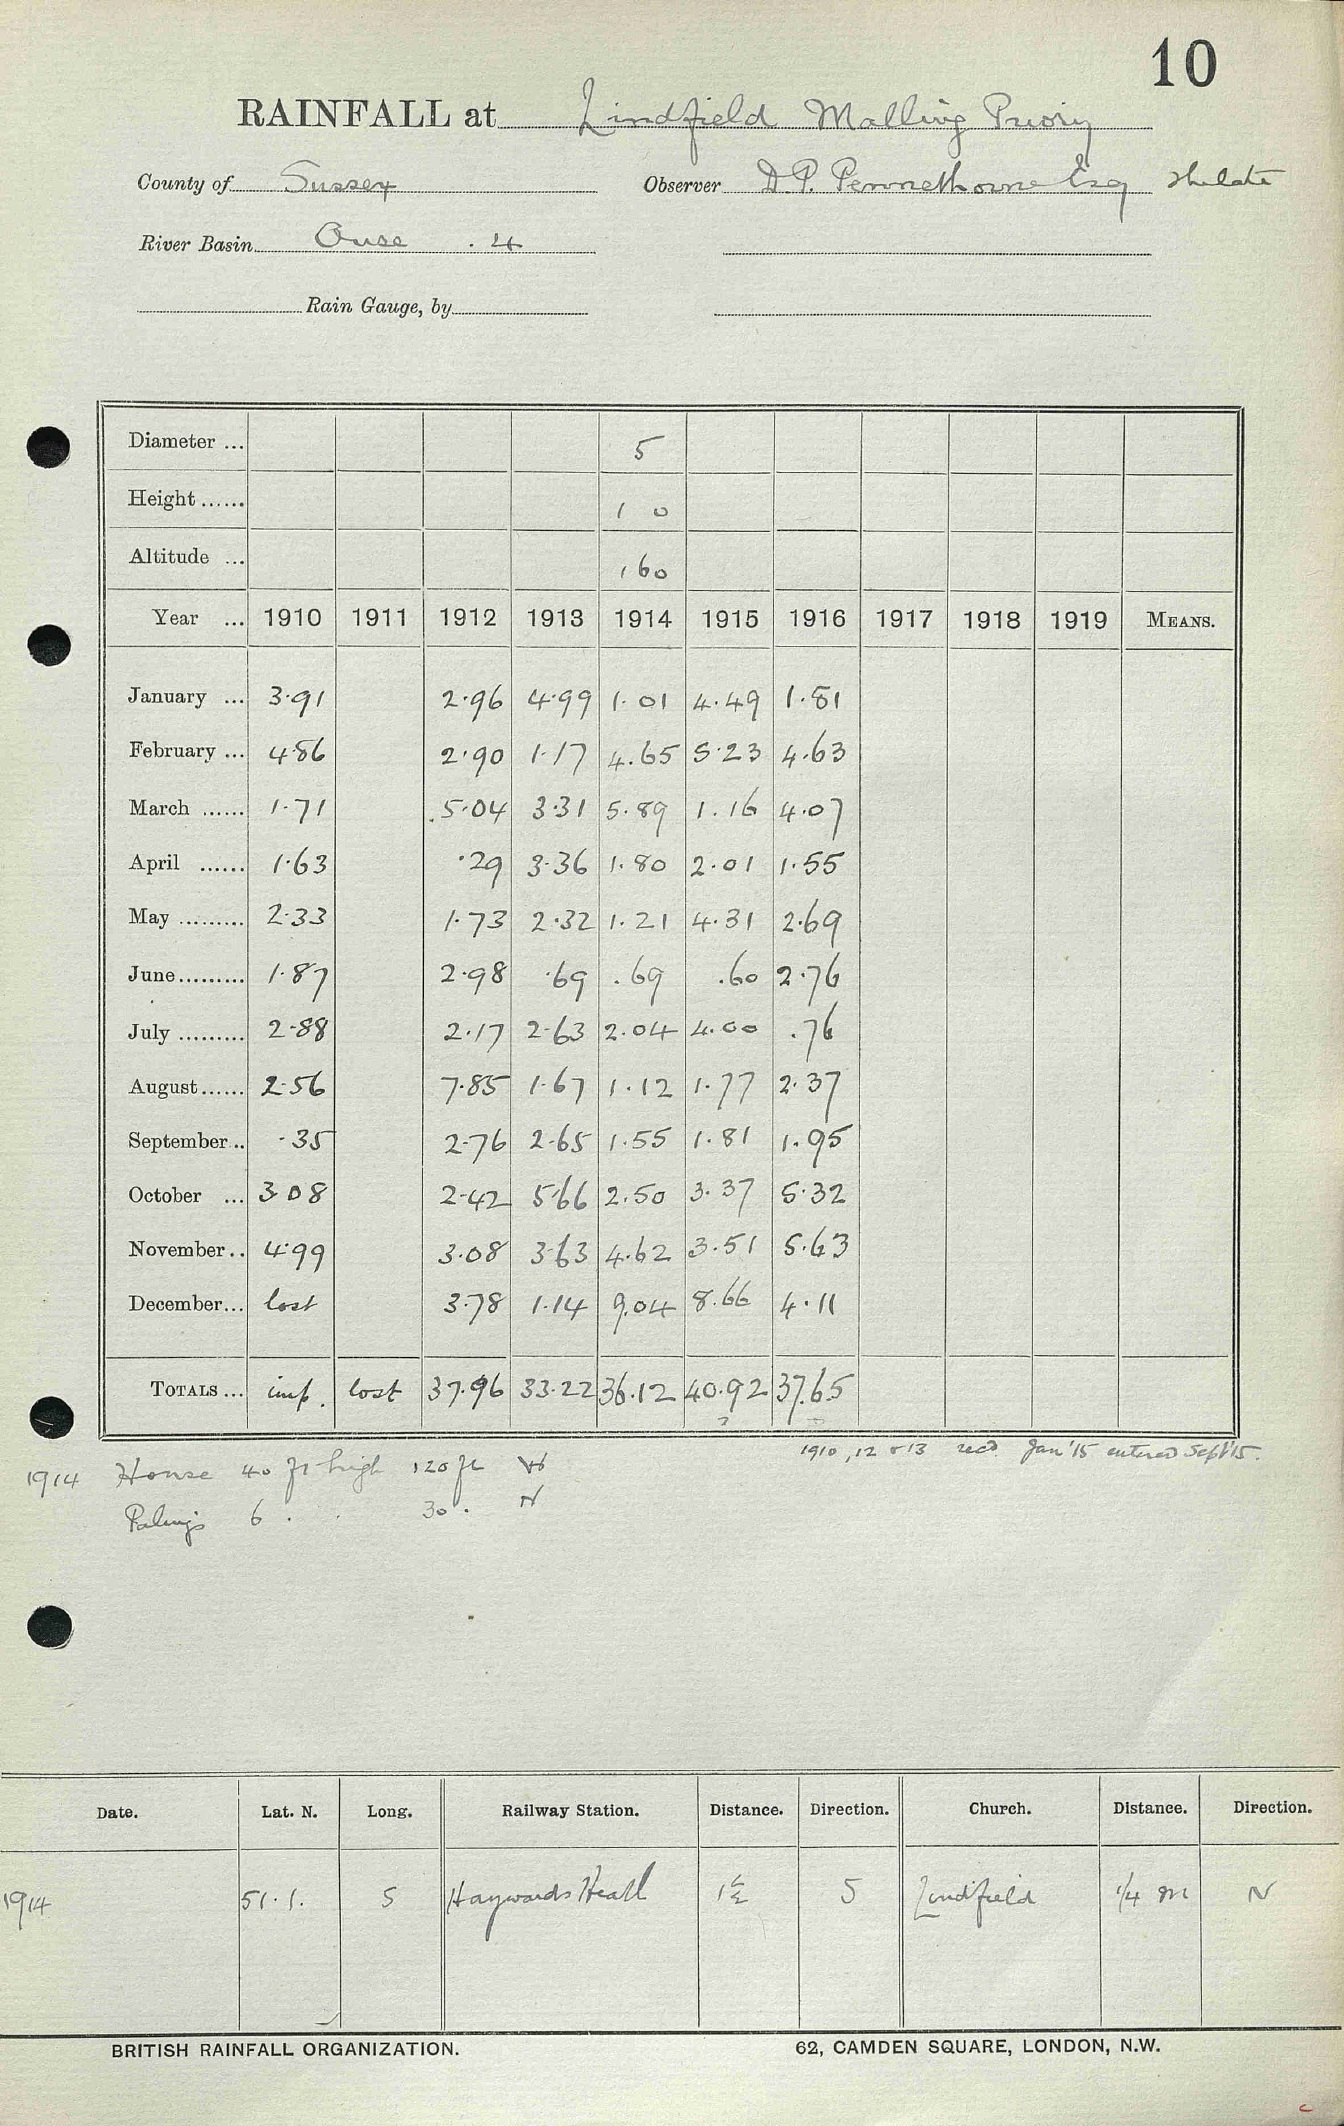 10
RAINFALL at Lindfield Malling Priory
County of Sussex Observer D.P. Pennethorne Esq the late
River Basin Ouse .4
Rain Gauge, by
Diameter ... 5
Height ...... 1 0
Altitude ... 160
Year ... 1910 1911 1912 1913 1914 1915 1916 1917 1918 1919 MEANS.
January ... 3.91 2.96 4.99 1.01 4.49 1.81
February ... 4.86 2.90 1.17 4.65 5.23 4.63
March ...... 1.71 5.04 3.31 5.89 1.16 4.07
April ...... 1.63 .29 3.36 1.80 2.01 1.55
May ......... 2.33 1.73 2.32 1.21 4.31 2.69
June ......... 1.87 2.98 .69 .69 .60 2.76
July ......... 2.88 2.17 2.63 2.04 4.00 .76
August ...... 2.56 7.85 1.67 1.12 1.77 2.37
September .. .35 2.76 2.65 1.55 1.81 1.95
October ... 3.08 2.42 5.66 2.50 3.37 5.32
November .. 4.99 3.08 3.63 4.62 3.51 5.63
December ... lost 3.78 1.14 9.04 8.66 4.11
TOTALS ... imp. lost 37.96 33.22 36.12 40.92 37.65
?
1910, 12 & 13 recd Jan '15 entered Sept '15.
1914 House 40 ft high 120 ft W
Palings 6 . . 30 . N
Date. Lat. N. Long. Railway Station. Distance. Direction. Church. Distance. Direction.
1914 51.1. 5 Haywards Heath 1½ S Lindfield 1/4 m N
BRITISH RAINFALL ORGANIZATION. 62, CAMDEN SQUARE, LONDON, N.W.
c